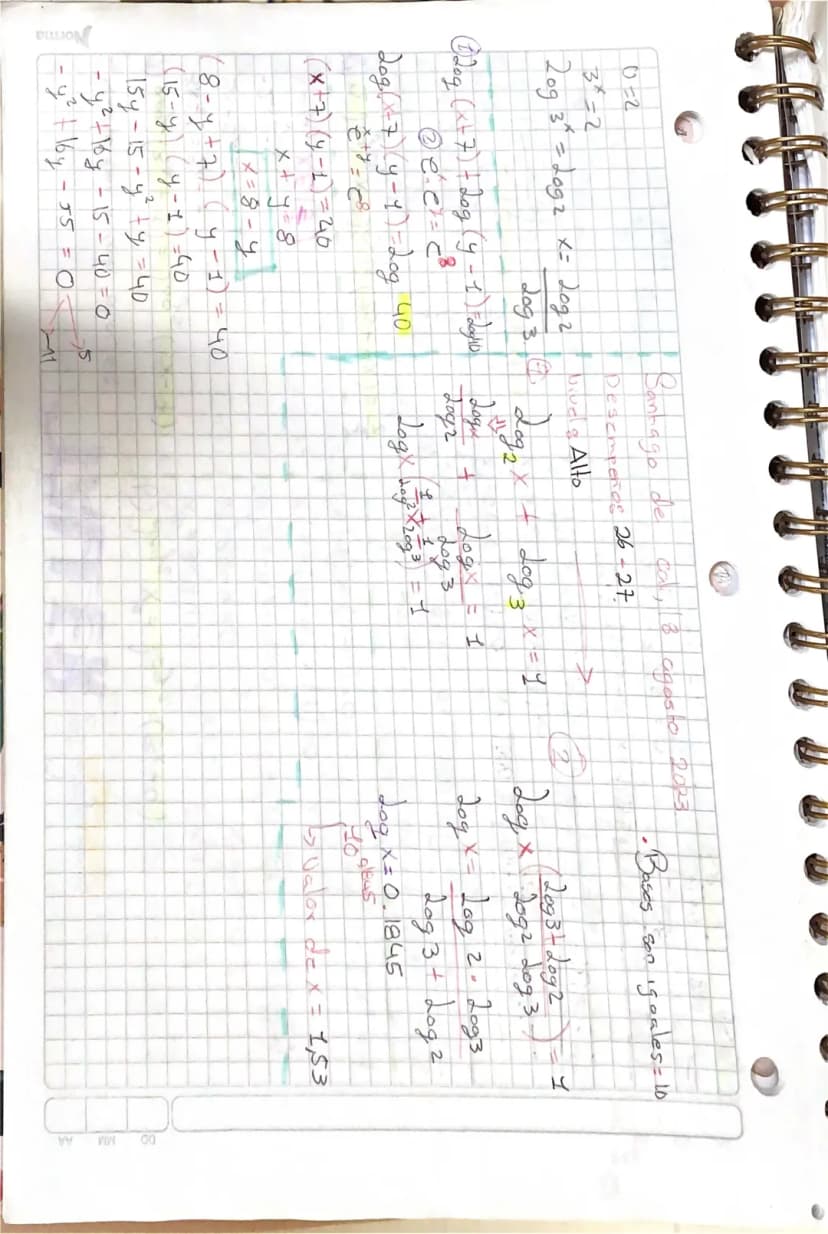 Santiago de cal, 8 agosto 2023
Desempeños 26-27.
Nivel: Alto
• Bases son iguales = 10
① log₂ x + log₃ x = 1
logx/log2 + logx/log3 = 1
log x (1/log2 + 1/log3) = 1
②
log x (log3 + log2 / log2 log3) = 1
log x = log 2 · log3 / log 3 + log 2
log x = 0.1845
10^0,1845
↳ Valor de x = 1,53
υ=2
3ˣ = 2
log 3ˣ = log 2 x = log 2 / log 3
① log (x+7) + log (y-1) = log 40
② eˣ. eʸ = e⁸
log (x+7) (y-1) = log 40
eˣ⁺ʸ = e⁸
(x+7) (y-1) = 40
x + y = 8
x = 8 - y
(8 - y + 7) (y - 1) = 40
(15 - y) (y - 1) = 40
15y - 15 - y² + y = 40
- y² + 16y - 15 - 40 = 0
- y² + 16y - 55 = 0
5
11
Norma
DD MM AA